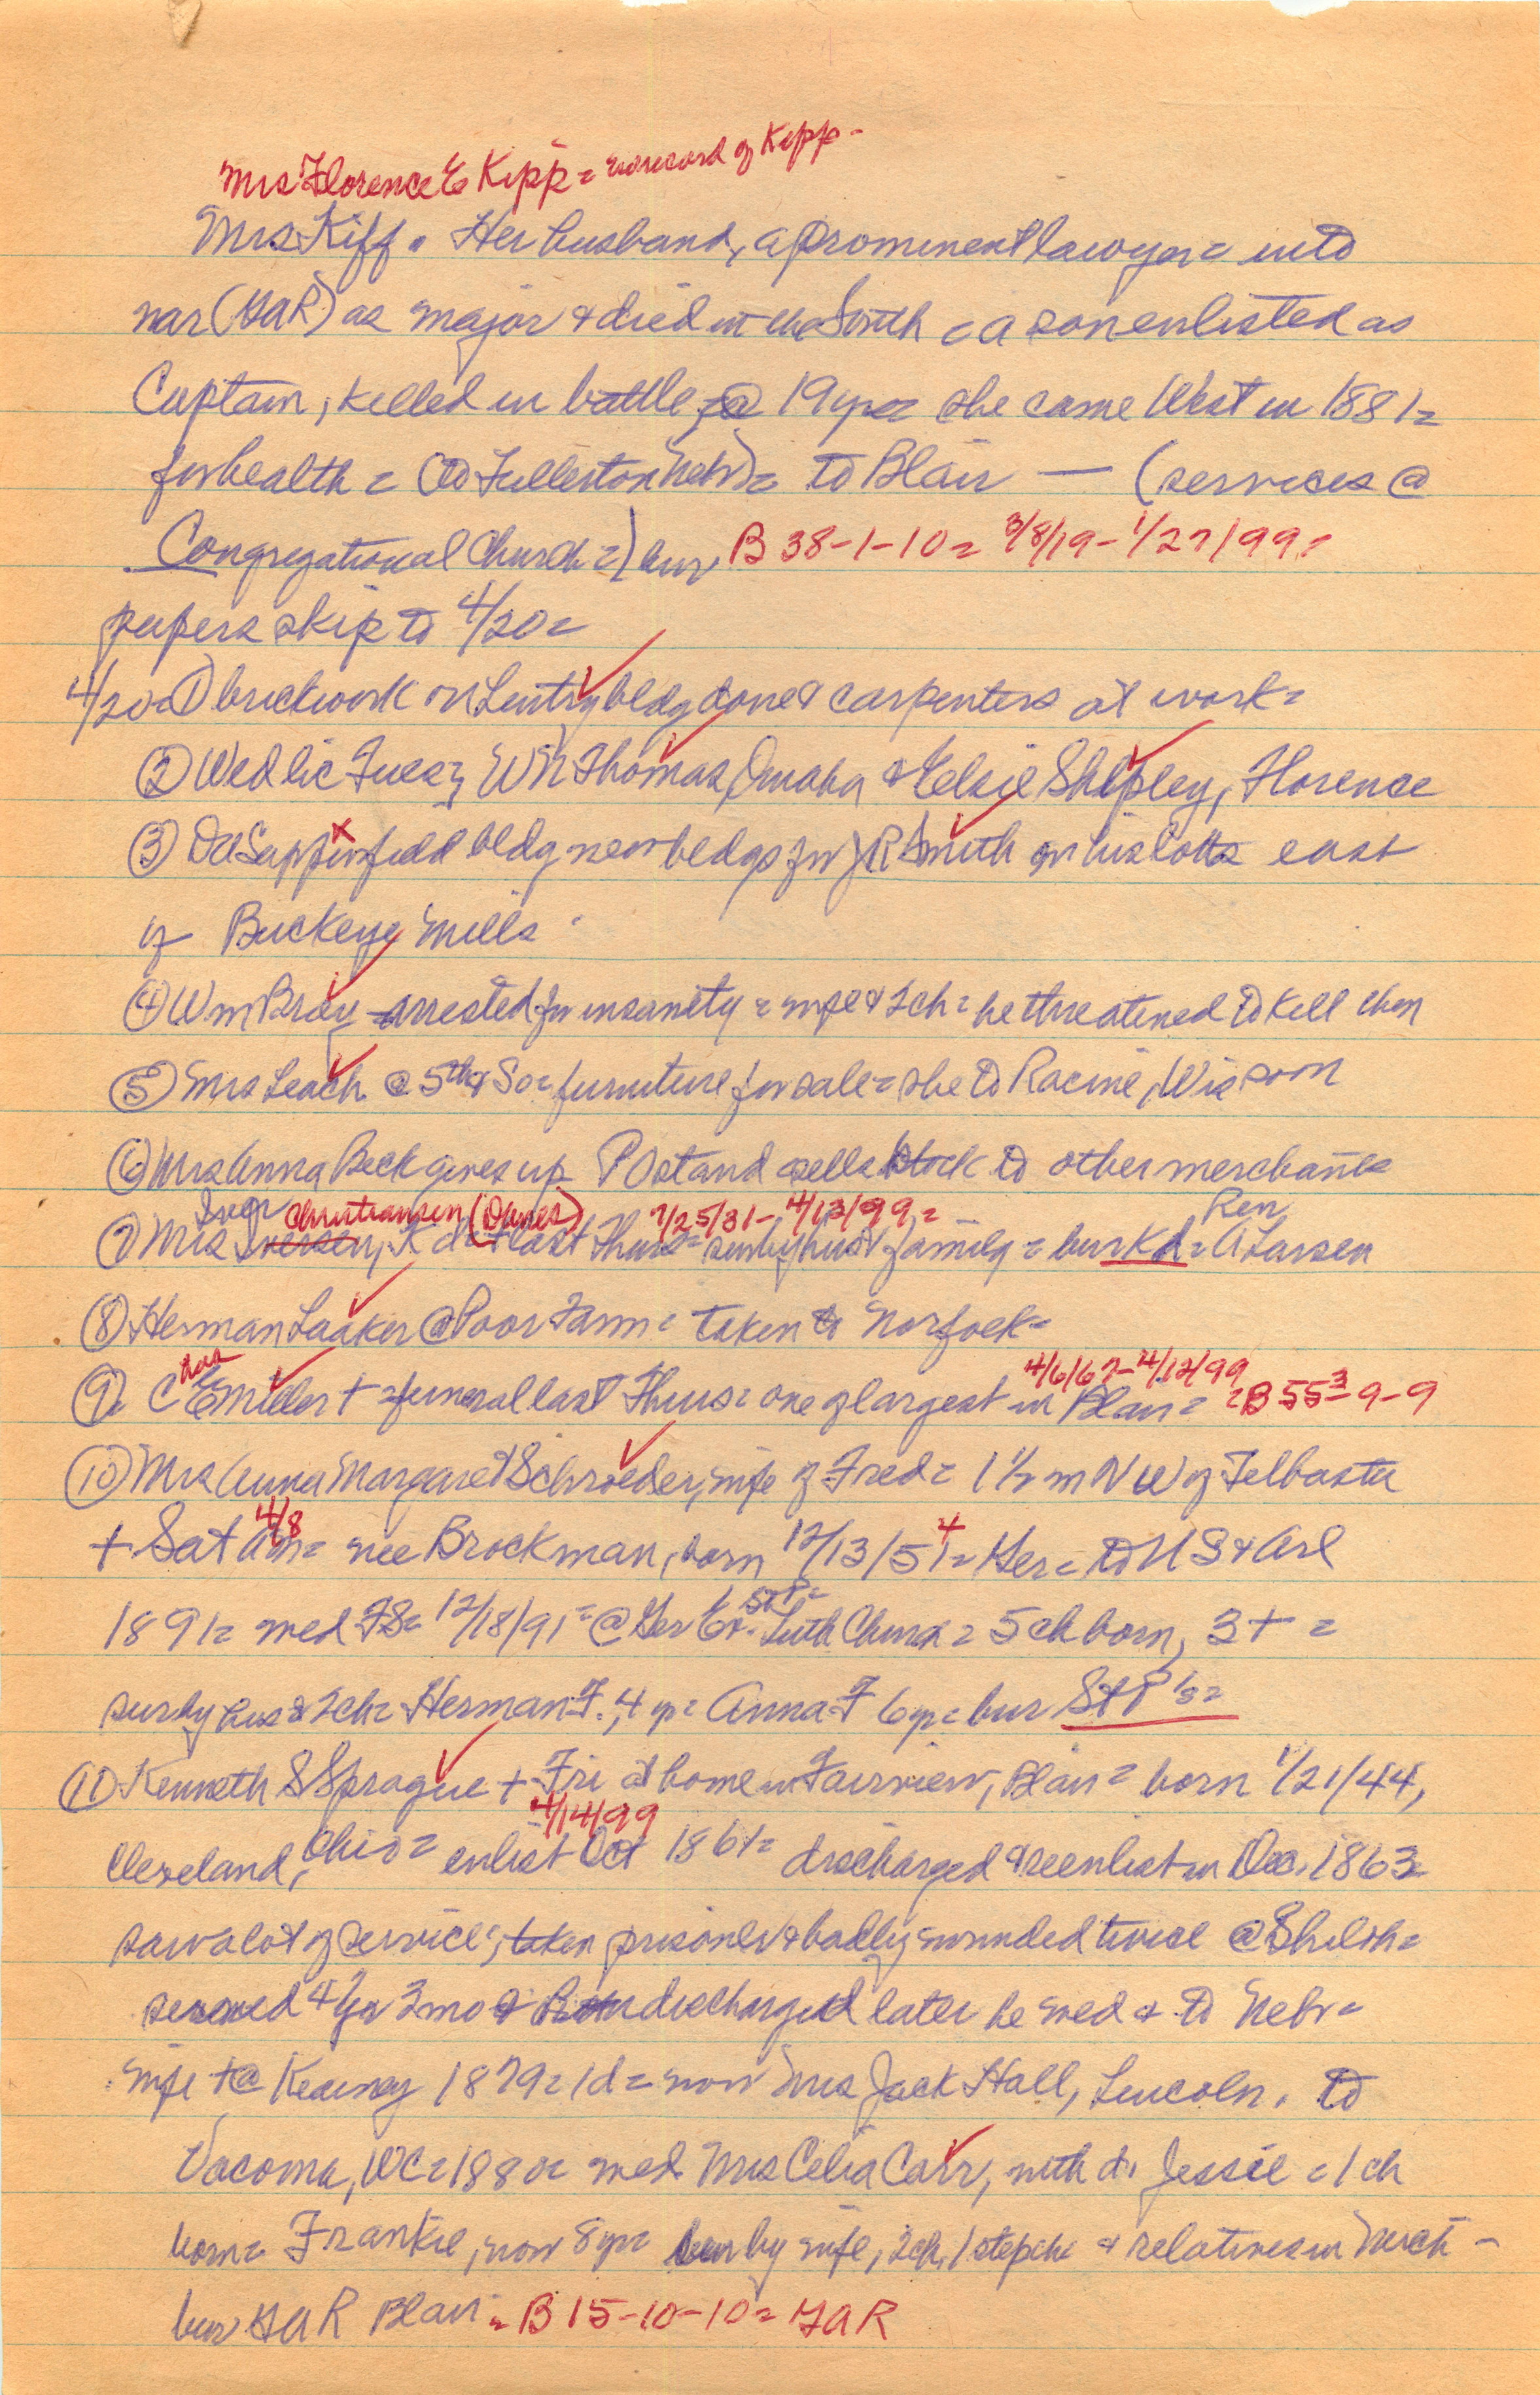 Mrs Florence E Kipp = record of Kipp -
Mrs Kiff. Her husband, a prominent lawyer = into
war (GAR) as major & died in the South = a son enlisted as
Captain, killed in battle @ 19 yr = she came West in 1881 =
for health = (to Fullerton Nebr) = to Blair — (services @
Congregational Church =) bur B 38-1-10 = 3/8/19 - 1/27/99 =
papers skip to 4/20 =
4/20 = ① brickwork on bldg done & carpenters at work =
② Wed lic Tues = W N Thomas, Omaha & Elsie Shipley, Florence
③ bldg new bldgs for J R Smith on his lotts east
of Buckeye Mills.
④ Wm Bray arrested for insanity = wife & 2ch = he threatened to kill them
⑤ Mrs Leach @ 5th & So = furniture for sale = she to Racine, Wis soon
⑥ Mrs Anna Beck gives up P O stand sells stock to other merchants
Iver Christiansen (Agnes) 7/25/31 - 4/13/99 = Rev
⑦ Mrs Iversen, Kd = + last Thurs = sur by hus & family = bur Kd = A Larsen
⑧ Herman Laaker @ Poor Farm = taken to Norfolk =
has 4/6/67 - 4/12/99
⑨ C E Miller + = funeral last Thurs = one of largest in Blair = = B 55-3-9-9
⑩ Mrs Anna Margaret Schroeder, wife of Fred = 1 1/2 m NW of Telbasta
4/8 4
+ Sat am = nee Brockman, born 12/13/51 = Ger = to U S & Arl
St P =
1891 = wed FS = 12/18/91 = @ Ger Ev. Luth Church = 5 ch born, 3 + =
sur by hus & 2ch = Herman F., 4 yr = Anna F 6 yr = bur St P's =
⑪ Kenneth S Sprague + Fri at home in Fairview, Blair = born 1/21/44,
4/14/99
Cleveland, Ohio = enlist Oct 1861 = discharged & reenlist in Dec. 1863 =
saw a lot of service, taken prisoner & badly wounded twice @ Shiloh =
served 4 yr 3 mo & discharged later he wed & to Nebr =
wife + @ Kearney 1879 = 1 d = now Mrs Jack Hall, Lincoln. to
Tacoma, W = 1880 = wed Mrs Celia Carr, with d. Jessie = 1 ch
born = Frankie, now 8 yr = sur by wife, 2ch, 1 stepch & relatives in Mich -
bur GAR Blair = B 15-10-10 = GAR